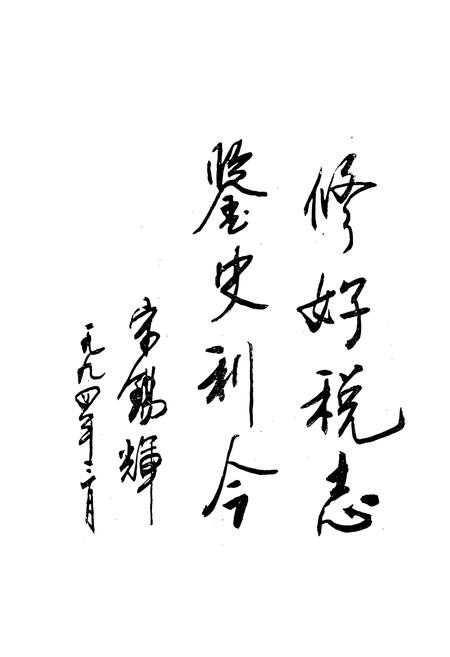 修好税志
鉴史利今
宋锡輝
一九九四年三月